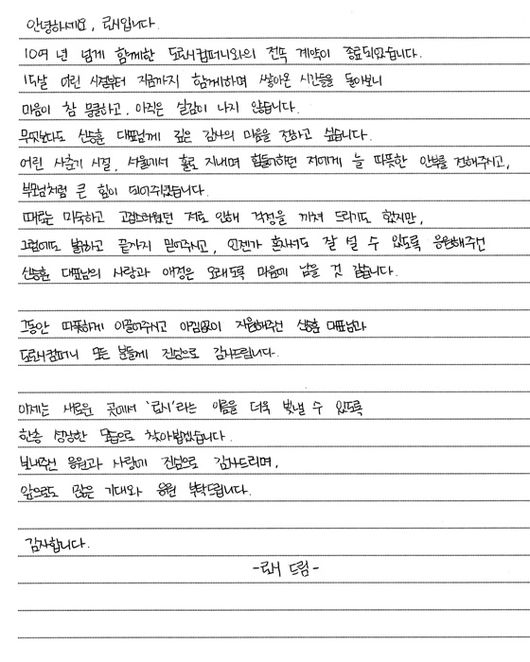 안녕하세요, 로시입니다.
10여 년 넘게 함께한 도로시컴퍼니와의 전속 계약이 종료되었습니다.
15살 어린 시절부터 지금까지 함께하며 쌓아온 시간들을 돌아보니
마음이 참 뭉클하고, 아직은 실감이 나지 않습니다.
무엇보다도 신승훈 대표님께 깊은 감사의 마음을 전하고 싶습니다.
어린 사춘기 시절, 서울에서 홀로 지내며 힘들어하던 저에게 늘 따뜻한 안부를 전해주시고,
부모님처럼 큰 힘이 되어주셨습니다.
때로는 미숙하고 고집스러웠던 저로 인해 걱정을 끼쳐 드리기도 했지만,
그럼에도 불구하고 끝까지 믿어주시고, 언젠가 혼자서도 잘 설 수 있도록 응원해주신
신승훈 대표님의 사랑과 애정은 오래도록 마음에 남을 것 같습니다.
그동안 따뜻하게 이끌어주시고 아낌없이 지원해주신 신승훈 대표님과
도로시컴퍼니 모든 분들께 진심으로 감사드립니다.
이제는 새로운 곳에서 '로시'라는 이름을 더욱 빛낼 수 있도록
한층 성장한 모습으로 찾아뵙겠습니다.
보내주신 응원과 사랑에 진심으로 감사드리며,
앞으로도 많은 기대와 응원 부탁드립니다.
감사합니다.
-로시 드림-